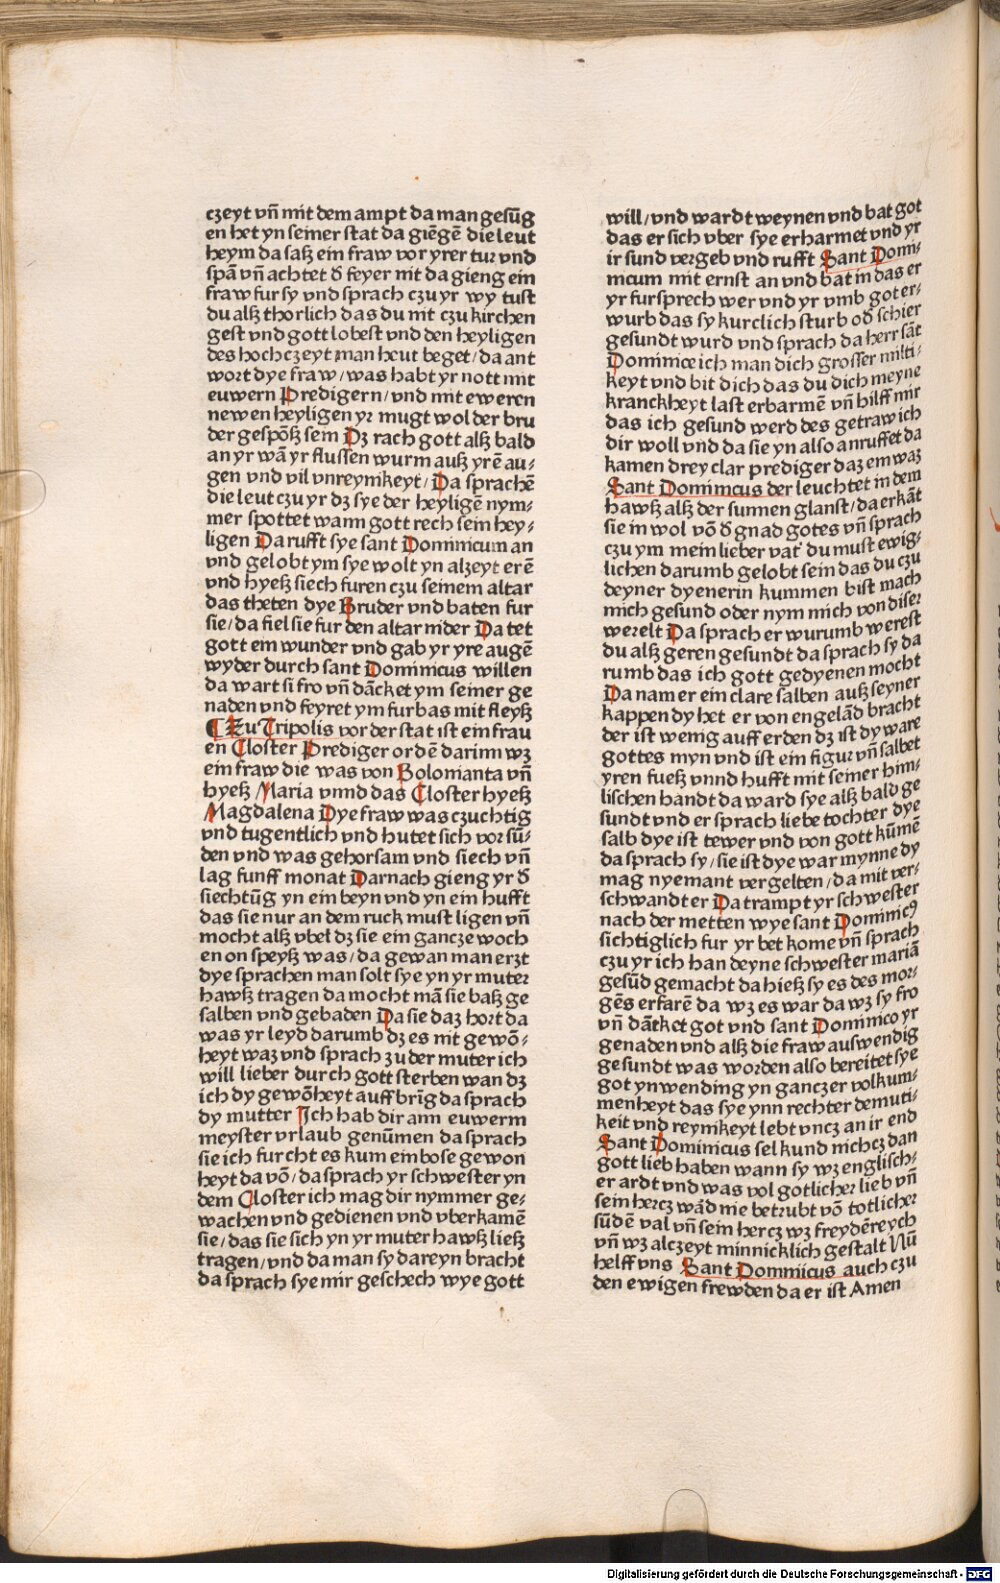 czeyt vn̄ mit dem ampt da man gesūg
en het yn seiner stat da giēgē die leut
heym da saſz ein fraw vor yrer tur vnd
spā vn̄ achtet d̄ feyer nit da gieng ein
fraw fur sy vnd sprach czu yr wy tust
du alſz thorlich das du nit czu kirchen
gest vnd gott lobest vnd den heyligen
des hochczeyt man heut beget/da ant
wort dye fraw/was habt yr nott mit
euwern Predigern/vnd mit eweren
newen heyligen yr mugt wol der bru
der gespōſz sein Dz rach gott alſz bald
an yr wā yr flussen wurm auſz yrē au⸗
gen vnd vil vnreynikeyt/Da sprachē
die leut czu yr dz sye der heyligē nym⸗
mer spottet wann gott rech sein hey⸗
ligen Da rufft sye sant Dominicum an
vnd gelobt ym sye wolt yn alzeyt erē
vnd hyeſz siech furen czu seinem altar
das theten dye Bruder vnd baten fur
sie/da fiel sie fur den altar nider Da tet
gott ein wunder vnd gab yr yre augē
wyder durch sant Dominicus willen
da wart si fro vn̄ dācket ym seiner ge
naden vnd feyret ym furbas mit fleyſz
¶ Zu Tripolis vor der stat ist ein frau
en Closter Prediger ordē darinn wz
ein fraw die was von Bolonianta vn̄
hyeſz Maria vnnd das Closter hyeſz
Magdalena Dye fraw was czuchtig
vnd tugentlich vnd hutet sich vor sū⸗
den vnd was gehorsam vnd siech vn̄
lag funff monat Darnach gieng yr d̄
siechtūg yn ein beyn vnd yn ein hufft
das sie nur an dem ruck must ligen vn̄
mocht alſz vbel dz sie ein gancze woch
en on speyſz was/da gewan man erzt
dye sprachen man solt sye yn yr muter
hawſz tragen da mocht mā sie baſz ge
salben vnd gebaden Da sie daz hort da
was yr leyd darumb dz es nit gewō⸗
heyt waz vnd sprach zu der muter ich
will lieber durch gott sterben wan dz
ich dy gewōheyt auff brīg da sprach
dy mutter Ich hab dir ann euwerm
meyster vrlaub genūmen da sprach
sie ich furcht es kum ein bose gewon
heyt da vō/da sprach yr schwester yn
dem Closter ich mag dir nymmer ge⸗
wachen vnd gedienen vnd vberkamē
sie/das sie sich yn yr muter hawſz lieſz
tragen/vnd da man sy dareyn bracht
da sprach sye mir geschech wye gott
will/vnd wardt weynen vnd bat got
das er sich vber sye erharmet vnd yr
ir sund vergeb vnd rufft Sant Domi⸗
nicum mit ernst an vnd bat in das er
yr fursprech wer vnd yr vmb got er⸗
wurb das sy kurclich sturb od̄ schier
gesundt wurd vnd sprach da herr sāt
Dominice ich man dich grosser milti⸗
keyt vnd bit dich das du dich meyne
kranckheyt last erbarmē vn̄ hilff mir
das ich gesund werd des getraw ich
dir woll vnd da sie yn also anruffet da
kamen drey clar prediger daz ein waz
Sant Dominicus der leuchtet in dem
hawſz alſz der sunnen glanst/da erkāt
sie in wol vō d̄ gnad gotes vn̄ sprach
czu ym mein lieber vat' du must ewig⸗
lichen darumb gelobt sein das du czu
deyner dyenerin kummen bist mach
mich gesund oder nym mich von diser
werelt Da sprach er wurumb werest
du alſz geren gesundt da sprach sy da
rumb das ich gott gedyenen mocht
Da nam er ein clare salben auſz seyner
kappen dy het er von engelād bracht
der ist wenig auff erden dz ist dy ware
gottes myn vnd ist ein figur vn̄ salbet
yren fueſz vnnd hufft mit seiner him⸗
lischen handt da ward sye alſz bald ge
sundt vnd er sprach liebe tochter dye
salb dye ist tewer vnd von gott kūmē
da sprach sy/sie ist dye war mynne dy
mag nyemant vergelten/da mit ver⸗
schwandt er Da trampt yr schwester
nach der metten wye sant Dominicꝰ
sichtiglich fur yr bet kome vn̄ sprach
czu yr ich han deyne schwester mariā
gesūd gemacht da hieſz sy es des mor⸗
gēs erfarē da wz es war da wz sy fro
vn̄ dācket got vnd sant Dominico yr
genaden vnd alſz die fraw auswendig
gesundt was worden also bereitet sye
got ynwending yn ganczer volkum⸗
menheyt das sye ynn rechter demuti⸗
keit vnd reynikeyt lebt vncz an ir end
Sant Dominicus selkund nichcz dan
gott lieb haben wann sy wz englisch⸗
er ardt vnd was vol gotlicher lieb vn̄
sein hercz wād nie betrubt vō totlicher
sūdē val vn̄ sein hercz wz freydēreych
vn̄ wz alczeyt minnicklich gestalt Nū
helff vns Sant Dommicus auch czu
den ewigen frewden da er ist Amen
Digitalisierung gefördert durch die Deutsche Forschungsgemeinschaft - DFG